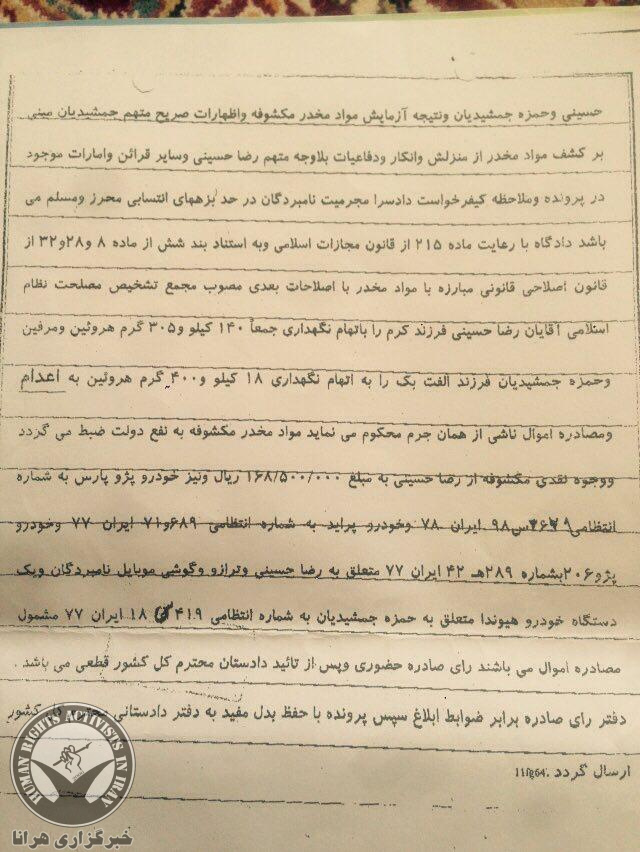 حسینی وحمزه جمشیدیان ونتیجه آزمایش مواد مخدر مکشوفه واظهارات صریح متهم جمشیدیان مبنی
بر کشف مواد مخدر از منزلش وانکار ودفاعیات بلاوجه متهم رضا حسینی وسایر قرائن وامارات موجود
در پرونده وملاحظه کیفرخواست دادسرا مجرمیت نامبردگان در حد بزههای انتسابی محرز ومسلم می
باشد دادگاه با رعایت ماده ۲۱۵ از قانون مجازات اسلامی وبه استناد بند شش از ماده ۸ و۲۸و۳۲ از
قانون اصلاحی قانونی مبارزه با مواد مخدر با اصلاحات بعدی مصوب مجمع تشخیص مصلحت نظام
اسلامی آقایان رضا حسینی فرزند کرم را باتهام نگهداری جمعاً ۱۴۰ کیلو و۳۰۵ گرم هروئین ومرفین
وحمزه جمشیدیان فرزند الفت بک را به اتهام نگهداری ۱۸ کیلو و۴۰۰ گرم هروئین به اعدام
ومصادره اموال ناشی از همان جرم محکوم می نماید مواد مخدر مکشوفه به نفع دولت ضبط می گردد
ووجوه نقدی مکشوفه از رضا حسینی به مبلغ ۱۶۸/۵۰۰/۰۰۰ ریال ونیز خودرو پژو پارس به شماره
انتظامی ایران ۷۸ وخودرو پراید به شماره انتظامی ۶۸۹و۷۱ ایران ۷۷ وخودرو
پژو۲۰۶بشماره ۲۸۹هـ ۴۲ ایران ۷۷ متعلق به رضا حسینی وترازو وگوشی موبایل نامبردگان ویک
دستگاه خودرو هیوندا متعلق به حمزه جمشیدیان به شماره انتظامی ۴۱۹ ۱۸ ایران ۷۷ مشمول
مصادره اموال می باشند رای صادره حضوری وپس از تائید دادستان محترم کل کشور قطعی می باشد .
دفتر رای صادره برابر ضوابط ابلاغ سپس پرونده با حفظ بدل مفید به دفتر دادستانی کشور
ارسال گردد .
HUMAN RIGHTS ACTIVISTS IN IRAN
خبرگزاری هرانا